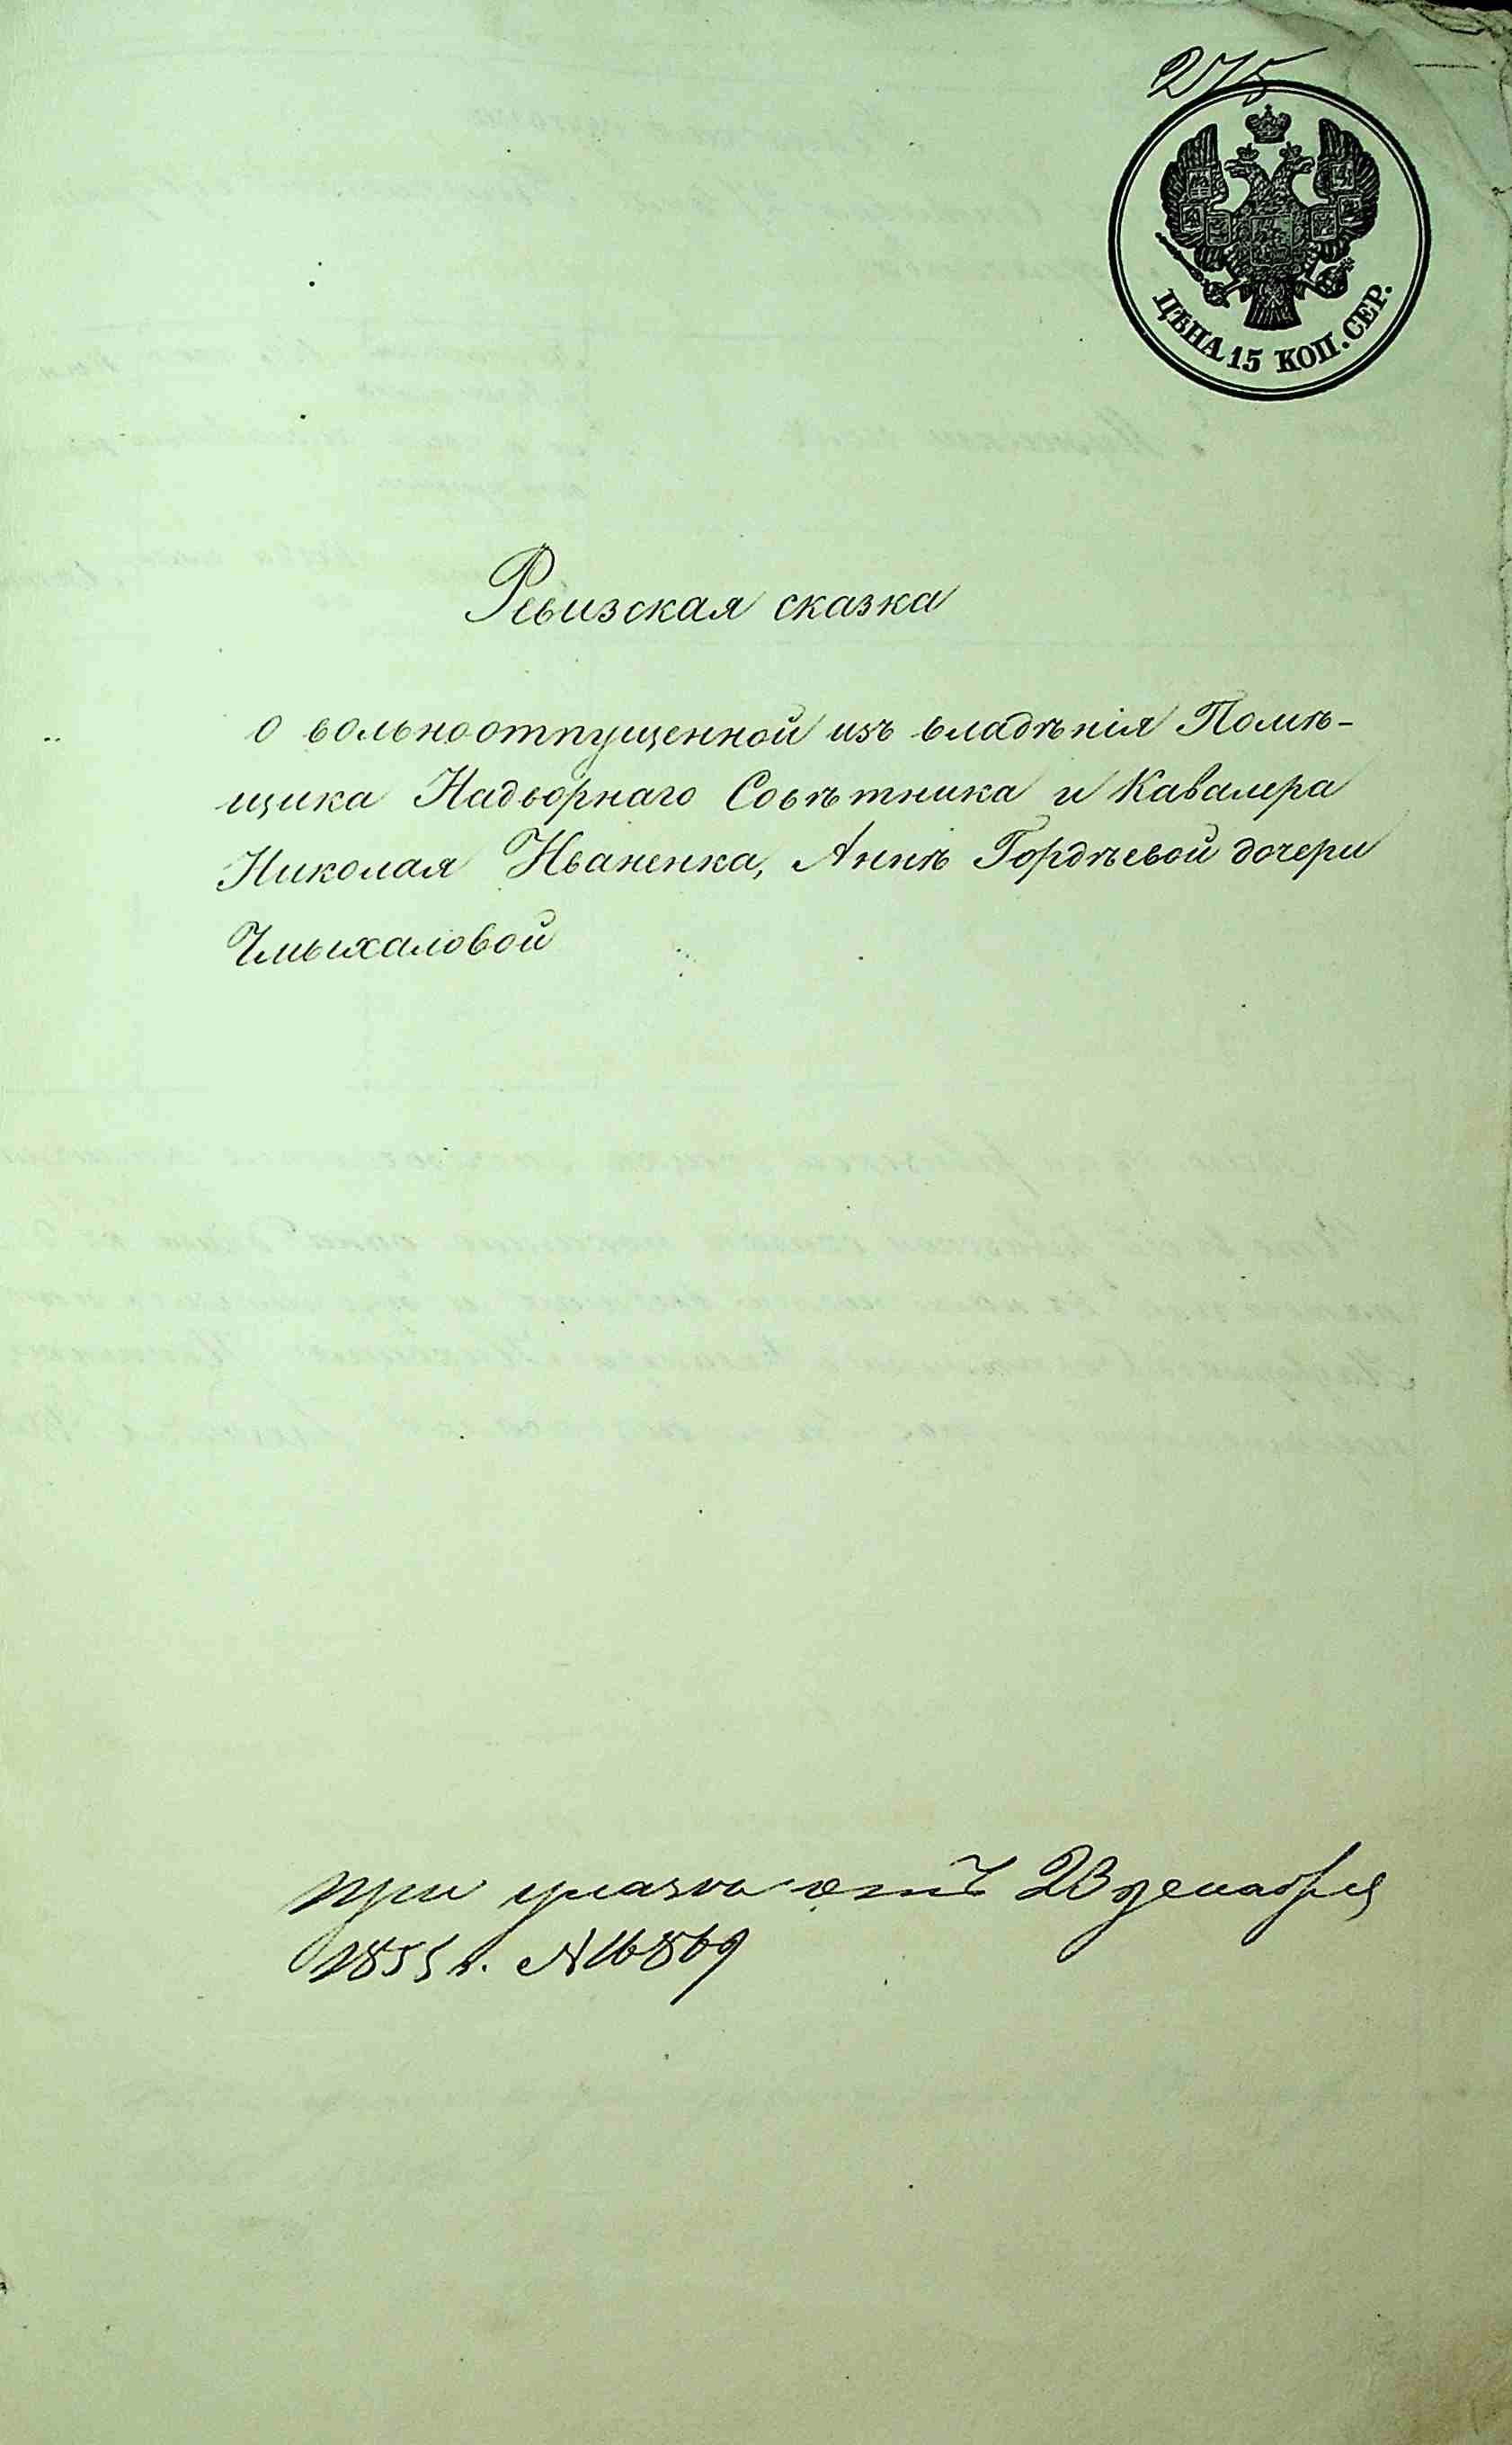 275
ЦѢНА 15 КОП. СЕР.
Ревизская сказка
о вольноотпущенной изъ владѣнія Помѣ-
щика Надворнаго Совѣтника и Кавалера
Николая Иваненка, Аннѣ Гордѣевой дочери
Чмыхаловой
при указѣ отъ 23 декабря
1855 г. №16869